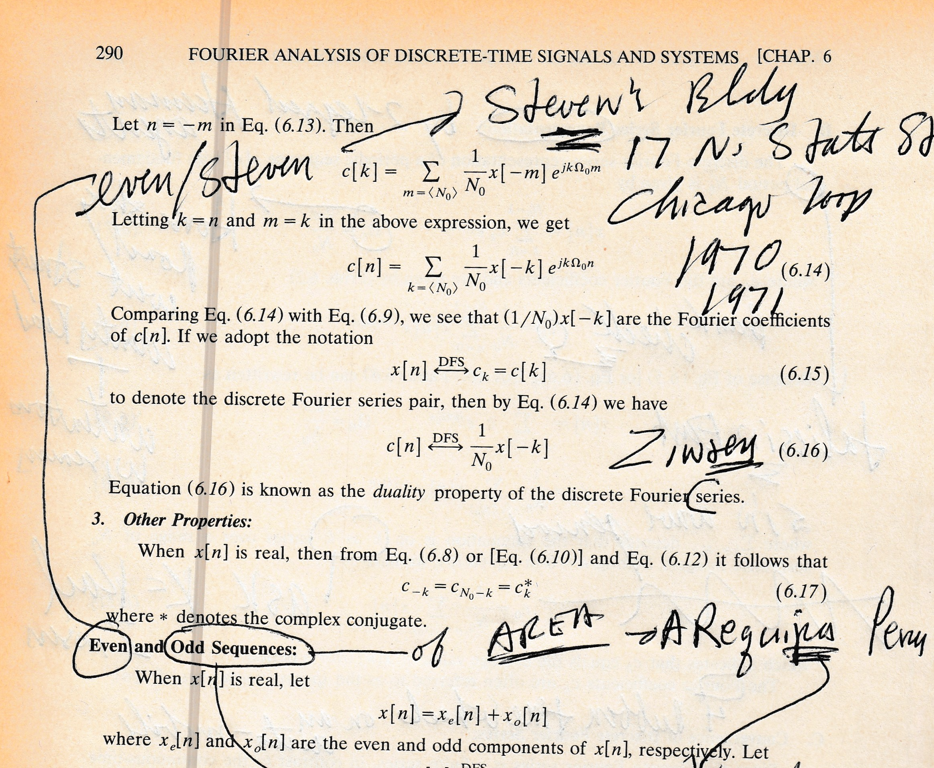 290 FOURIER ANALYSIS OF DISCRETE-TIME SIGNALS AND SYSTEMS [CHAP. 6
Steven's Bldy
Let n = −m in Eq. (6.13). Then
17 N. State St
even/Steven
c[k] = Σ_{m=⟨N₀⟩} 1/N₀ x[−m] e^{jkΩ₀m}
Chicago loop
Letting k = n and m = k in the above expression, we get
1970
c[n] = Σ_{k=⟨N₀⟩} 1/N₀ x[−k] e^{jkΩ₀n} (6.14)
1971
Comparing Eq. (6.14) with Eq. (6.9), we see that (1/N₀)x[−k] are the Fourier coefficients
of c[n]. If we adopt the notation
x[n] ⟷^{DFS} c_k = c[k] (6.15)
to denote the discrete Fourier series pair, then by Eq. (6.14) we have
c[n] ⟷^{DFS} 1/N₀ x[−k] (6.16)
Equation (6.16) is known as the duality property of the discrete Fourier series.
3. Other Properties:
When x[n] is real, then from Eq. (6.8) or [Eq. (6.10)] and Eq. (6.12) it follows that
c_{−k} = c_{N₀−k} = c*_k (6.17)
where * denotes the complex conjugate.
Even and Odd Sequences: of AREA → ARequipa Peru
When x[n] is real, let
x[n] = x_e[n] + x_o[n]
where x_e[n] and x_o[n] are the even and odd components of x[n], respectively. Let
DFS